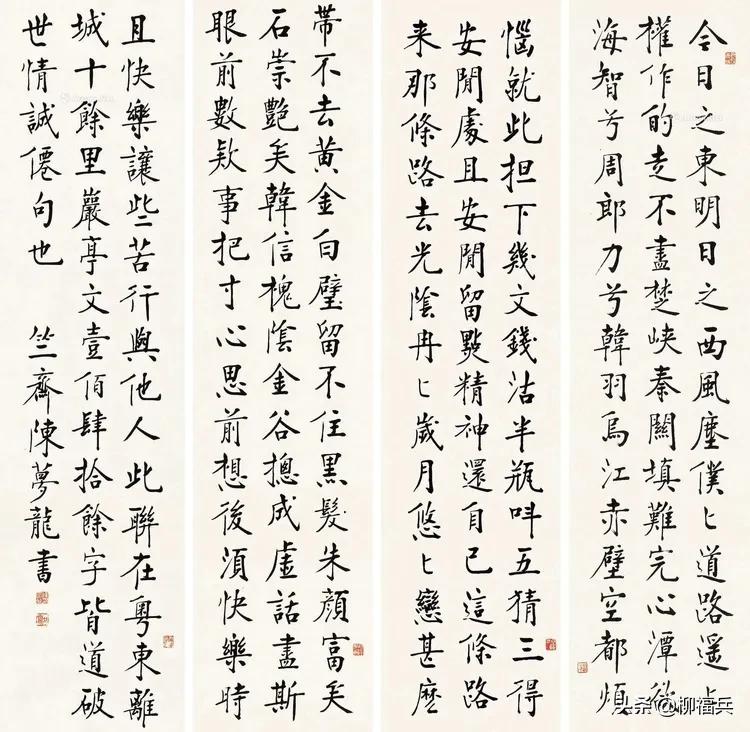 今日之東明日之西風塵僕々道路遥々
權作的走不盡楚峽秦關填難完心潭欲
海智兮周郎力兮韓羽烏江赤壁空都煩
惱就此担下幾文錢沽半瓶呌五猜三得
安閒處且安閒留點精神還自己這條路
来那條路去光陰冉々歲月悠々戀甚麽
帶不去黃金白璧留不住黑髮朱顏富矣
石崇艷矣韓信槐陰金谷摠成虛話盡斯
眼前數欵事把寸心思前想後須快樂時
且快樂讓些苦行與他人此聯在粤東離
城十餘里巖亭文壹佰肆拾餘字皆道破
世情誠僊句也 竺齋陳夢龍書
头条@柳福兵